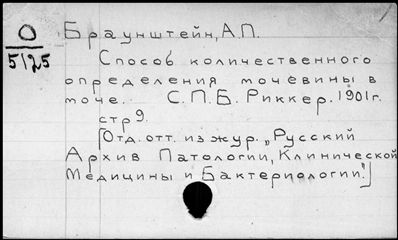 О
5125
Браунштейн, А.П.
Способ количественного
определения мочевины в
моче. С.П.Б. Риккер. 1901г.
стр 9.
[Отд. отт. из жур. „Русский
Архив Патологии, Клинической
Медицины и Бактериологии."]